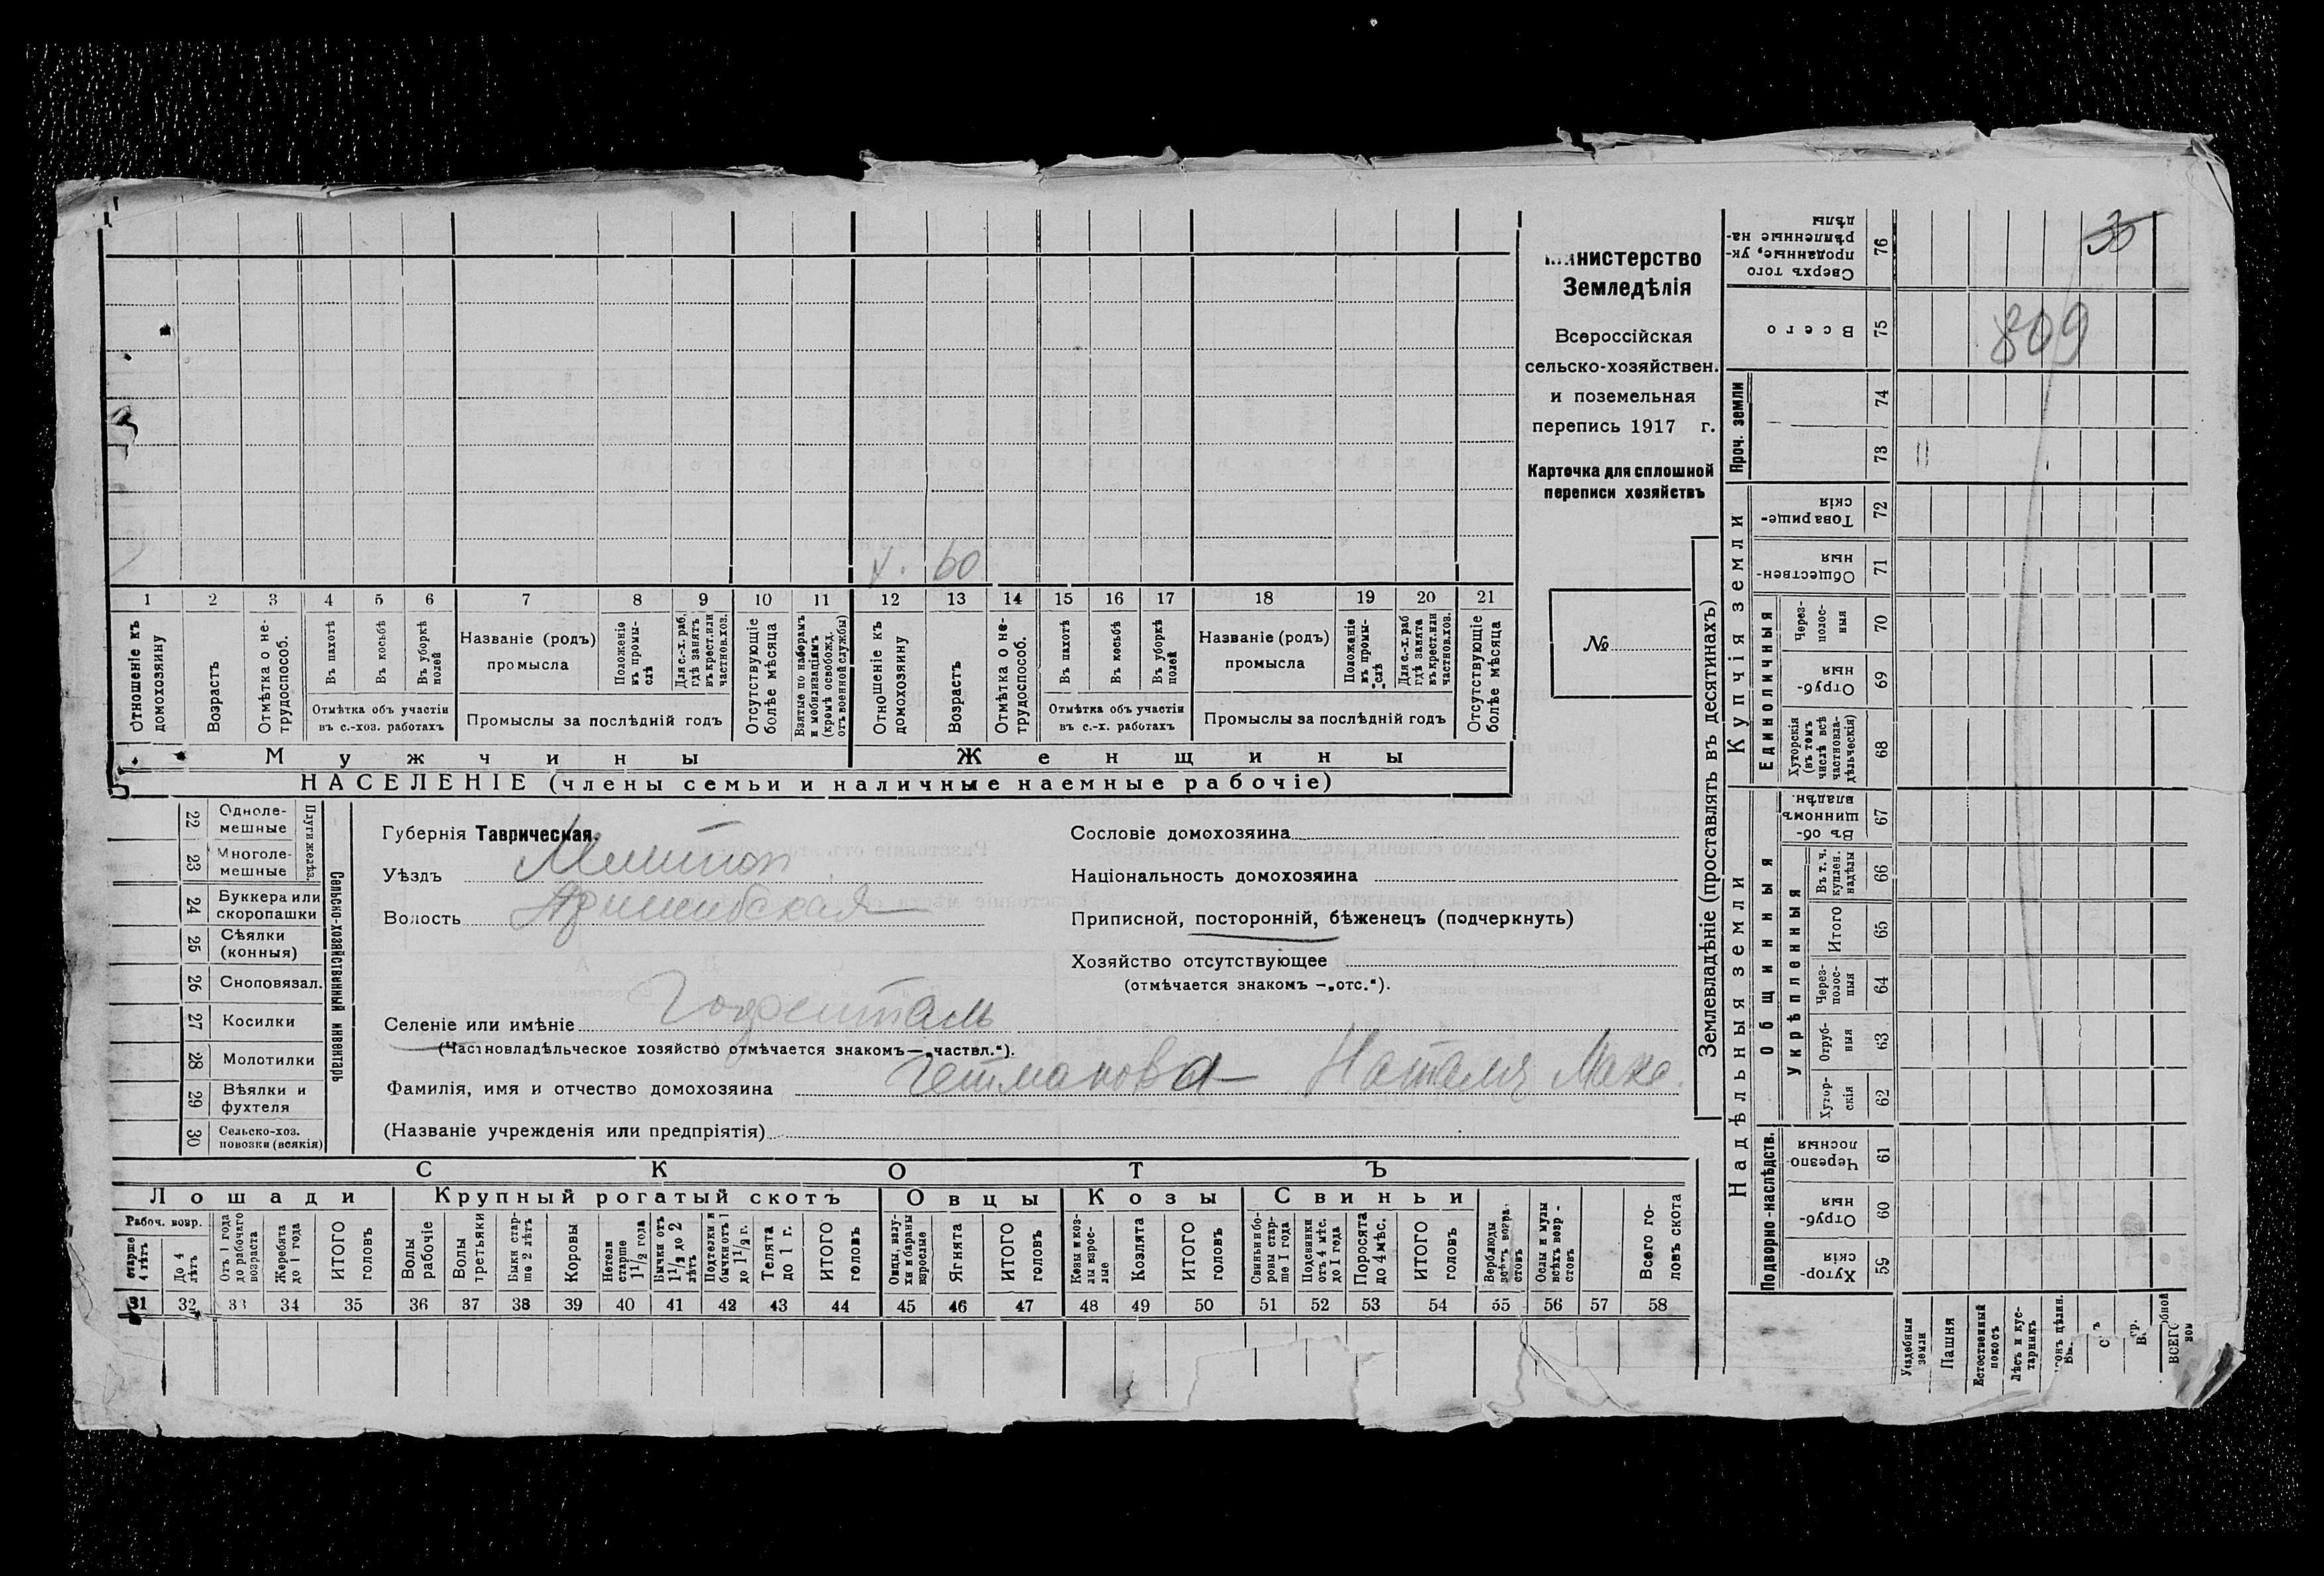 Министерство
Земледѣлія
Всероссійская
сельско-хозяйствен.
и поземельная
перепись 1917 г.
Карточка для сплошной
переписи хозяйствъ
№
х. 60
1 2 3 4 5 6 7 8 9 10 11 12 13 14 15 16 17 18 19 20 21
Отношеніе къ домохозяину
Возрастъ
Отмѣтка о не-трудоспособ.
Въ пахотѣ
Въ косьбѣ
Въ уборкѣ полей
Отмѣтка объ участіи
въ с.-хоз. работахъ
Названіе (родъ)
промысла
Положеніе въ промы-слѣ
Для с.-х. раб. гдѣ занятъ въ крест. или частнов. хоз.
Промыслы за послѣдній годъ
Отсутствующіе болѣе мѣсяца
Взятые по наборамъ и мобилизаціямъ (кромѣ освобожд. отъ военной службы)
Отношеніе къ домохозяину
Возрастъ
Отмѣтка о не-трудоспособ.
Въ пахотѣ
Въ косьбѣ
Въ уборкѣ полей
Отмѣтка объ участіи
въ с.-х. работахъ
Названіе (родъ)
промысла
Положеніе въ промы-слѣ
Для с.-х. раб. гдѣ занята въ крест. или частнов. хоз.
Промыслы за послѣдній годъ
Отсутствующіе болѣе мѣсяца
Мужчины Женщины
НАСЕЛЕНІЕ (члены семьи и наличные наемные рабочіе)
22 Одноле-мешные
23 Многоле-мешные
Плуги желѣз.
24 Буккера или скоропашки
25 Сѣялки (конныя)
26 Сноповязал.
27 Косилки
28 Молотилки
29 Вѣялки и фухтеля
30 Сельско-хоз. повозки (всякія)
Сельско-хозяйственный инвентарь
Губернія Таврическая.
Уѣздъ Мелитоп
Волость Пришибская
Селеніе или имѣніе Гофенталь
(Частновладѣльческое хозяйство отмѣчается знакомъ—„частвл.“).
Фамилія, имя и отчество домохозяина Гетманова Наталія Мака.
(Названіе учрежденія или предпріятія)
Сословіе домохозяина
Національность домохозяина
Приписной, посторонній, бѣженецъ (подчеркнуть)
Хозяйство отсутствующее
(отмѣчается знакомъ —„отс.“).
СКОТЪ
Лошади Крупный рогатый скотъ Овцы Козы Свиньи
Рабоч. возр.
старше 4 лѣтъ
До 4 лѣтъ
Отъ 1 года до рабочаго возраста
Жеребята до 1 года
ИТОГО головъ
Волы рабочіе
Волы третьяки
Быки стар-ше 2 лѣтъ
Коровы
Нетели старше 1 1/2 года
Бычки отъ 1 1/2 до 2 лѣтъ
Подтелки и бычки отъ 1 до 1 1/2 г.
Телята до 1 г.
ИТОГО головъ
Овцы, валу-хи и бараны взрослые
Ягнята
ИТОГО головъ
Козы и коз-лы взрос-лые
Козлята
ИТОГО головъ
Свиньи и бо-ровы стар-ше 1 года
Подсвинки отъ 4 мѣс. до 1 года
Поросята до 4 мѣс.
ИТОГО головъ
Верблюды всѣхъ возра-стовъ
Ослы и мулы всѣхъ возр-стовъ
Всего го-ловъ скота
31 32 33 34 35 36 37 38 39 40 41 42 43 44 45 46 47 48 49 50 51 52 53 54 55 56 57 58
Землевладѣніе (проставлять въ десятинахъ)
Надѣльныя земли
Купчія земли
Проч. земли
Подворно-наслѣдств.
Общинныя
Укрѣпленныя
Единоличныя
Сверхъ того проданные, ук-рѣпленные на-дѣлы 76
Всего 75
809
74
73
Товарище-скія 72
Обществен-ныя 71
Через-полос-ныя 70
Отруб-ныя 69
Хуторскія (въ томъ числѣ всѣ частновла-дѣльческія) 68
Въ об-щинномъ владѣн. 67
Въ т. ч. куплен. надѣлы 66
Итого 65
Через-полос-ныя 64
Отруб-ныя 63
Хутор-скія 62
Черезпо-лосныя 61
Отруб-ныя 60
Хутор-скія 59
Усадебныя земли
Пашня
Естественный покосъ
Лѣсъ и кус-тарникъ
ВСЕГО